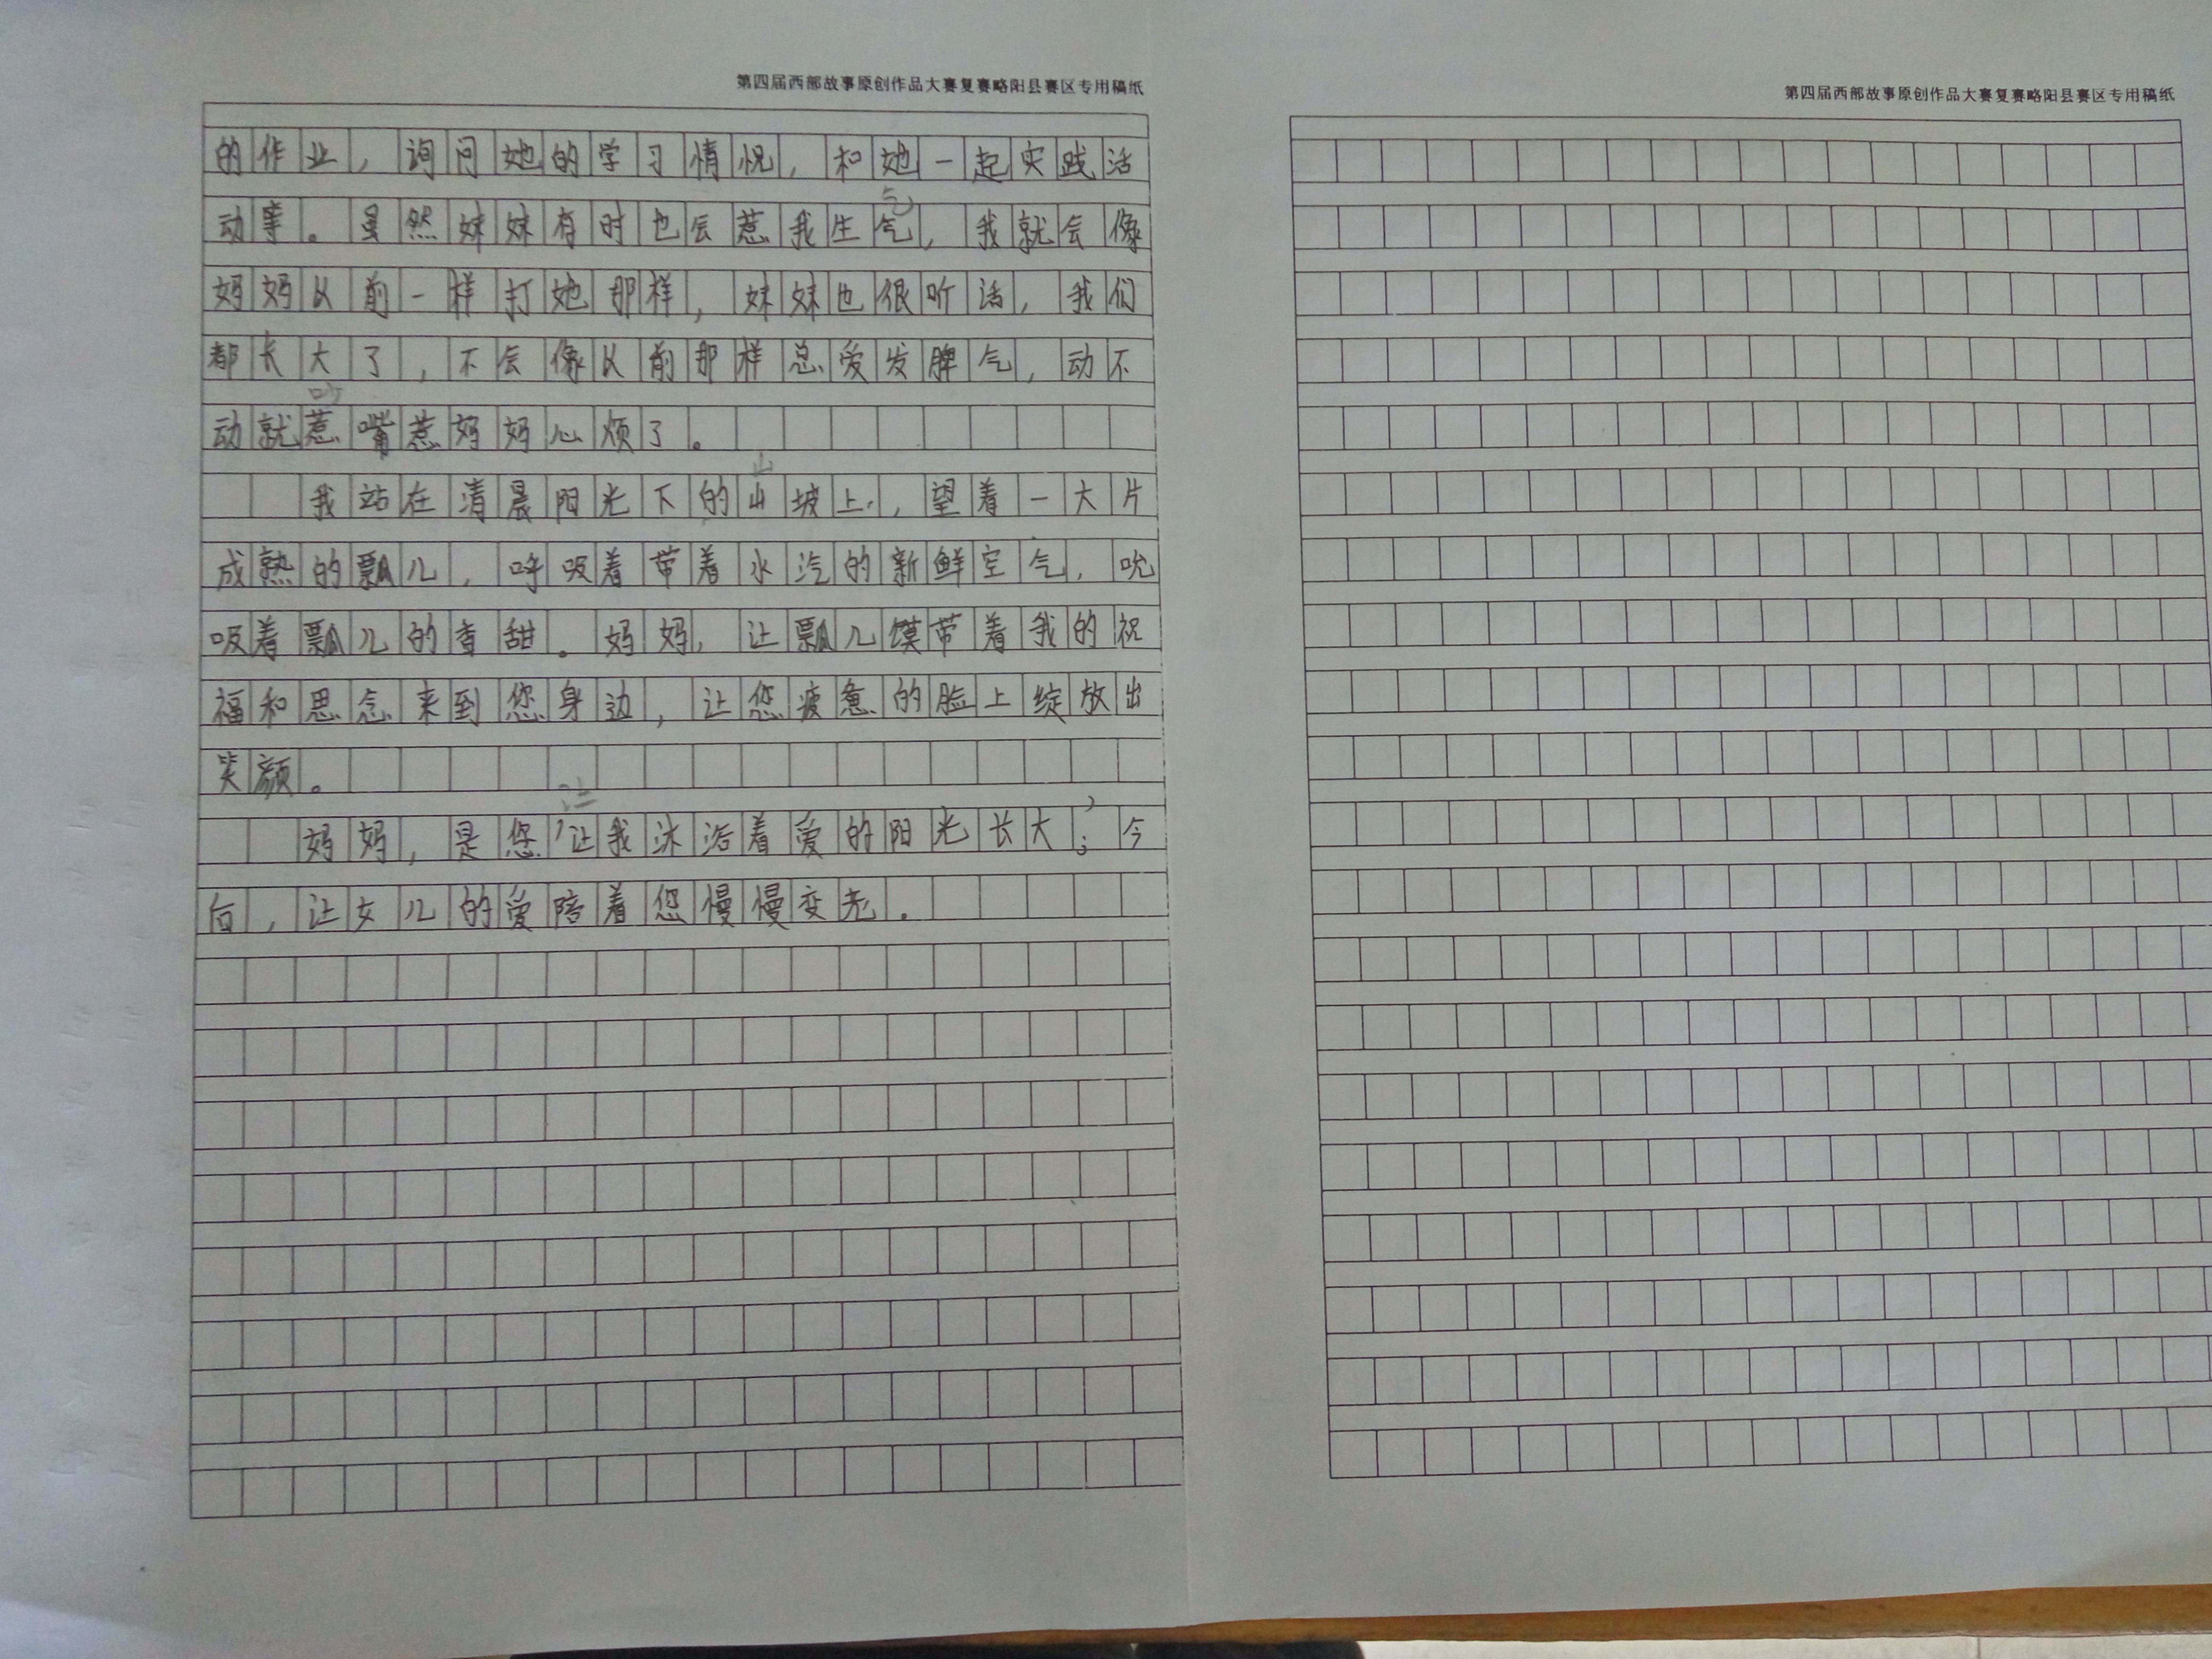 第四届西部故事原创作品大赛复赛略阳县赛区专用稿纸
的作业，询问她的学习情况，和她一起实践活
气
动等。虽然妹妹有时也会惹我生气，我就会像
妈妈以前一样打她那样，妹妹也很听话，我们
都长大了，不会像以前那样总爱发脾气，动不
吵
动就惹嘴惹妈妈心烦了。
山
我站在清晨阳光下的山坡上，望着一大片
成熟的瓢儿，呼吸着带着水汽的新鲜空气，吮
吸着瓢儿的香甜。妈妈，让瓢儿馍带着我的祝
福和思念来到您身边，让您疲惫的脸上绽放出
笑颜。
让
妈妈，是您，让我沐浴着爱的阳光长大；今
后，让女儿的爱陪着您慢慢变老。
第四届西部故事原创作品大赛复赛略阳县赛区专用稿纸